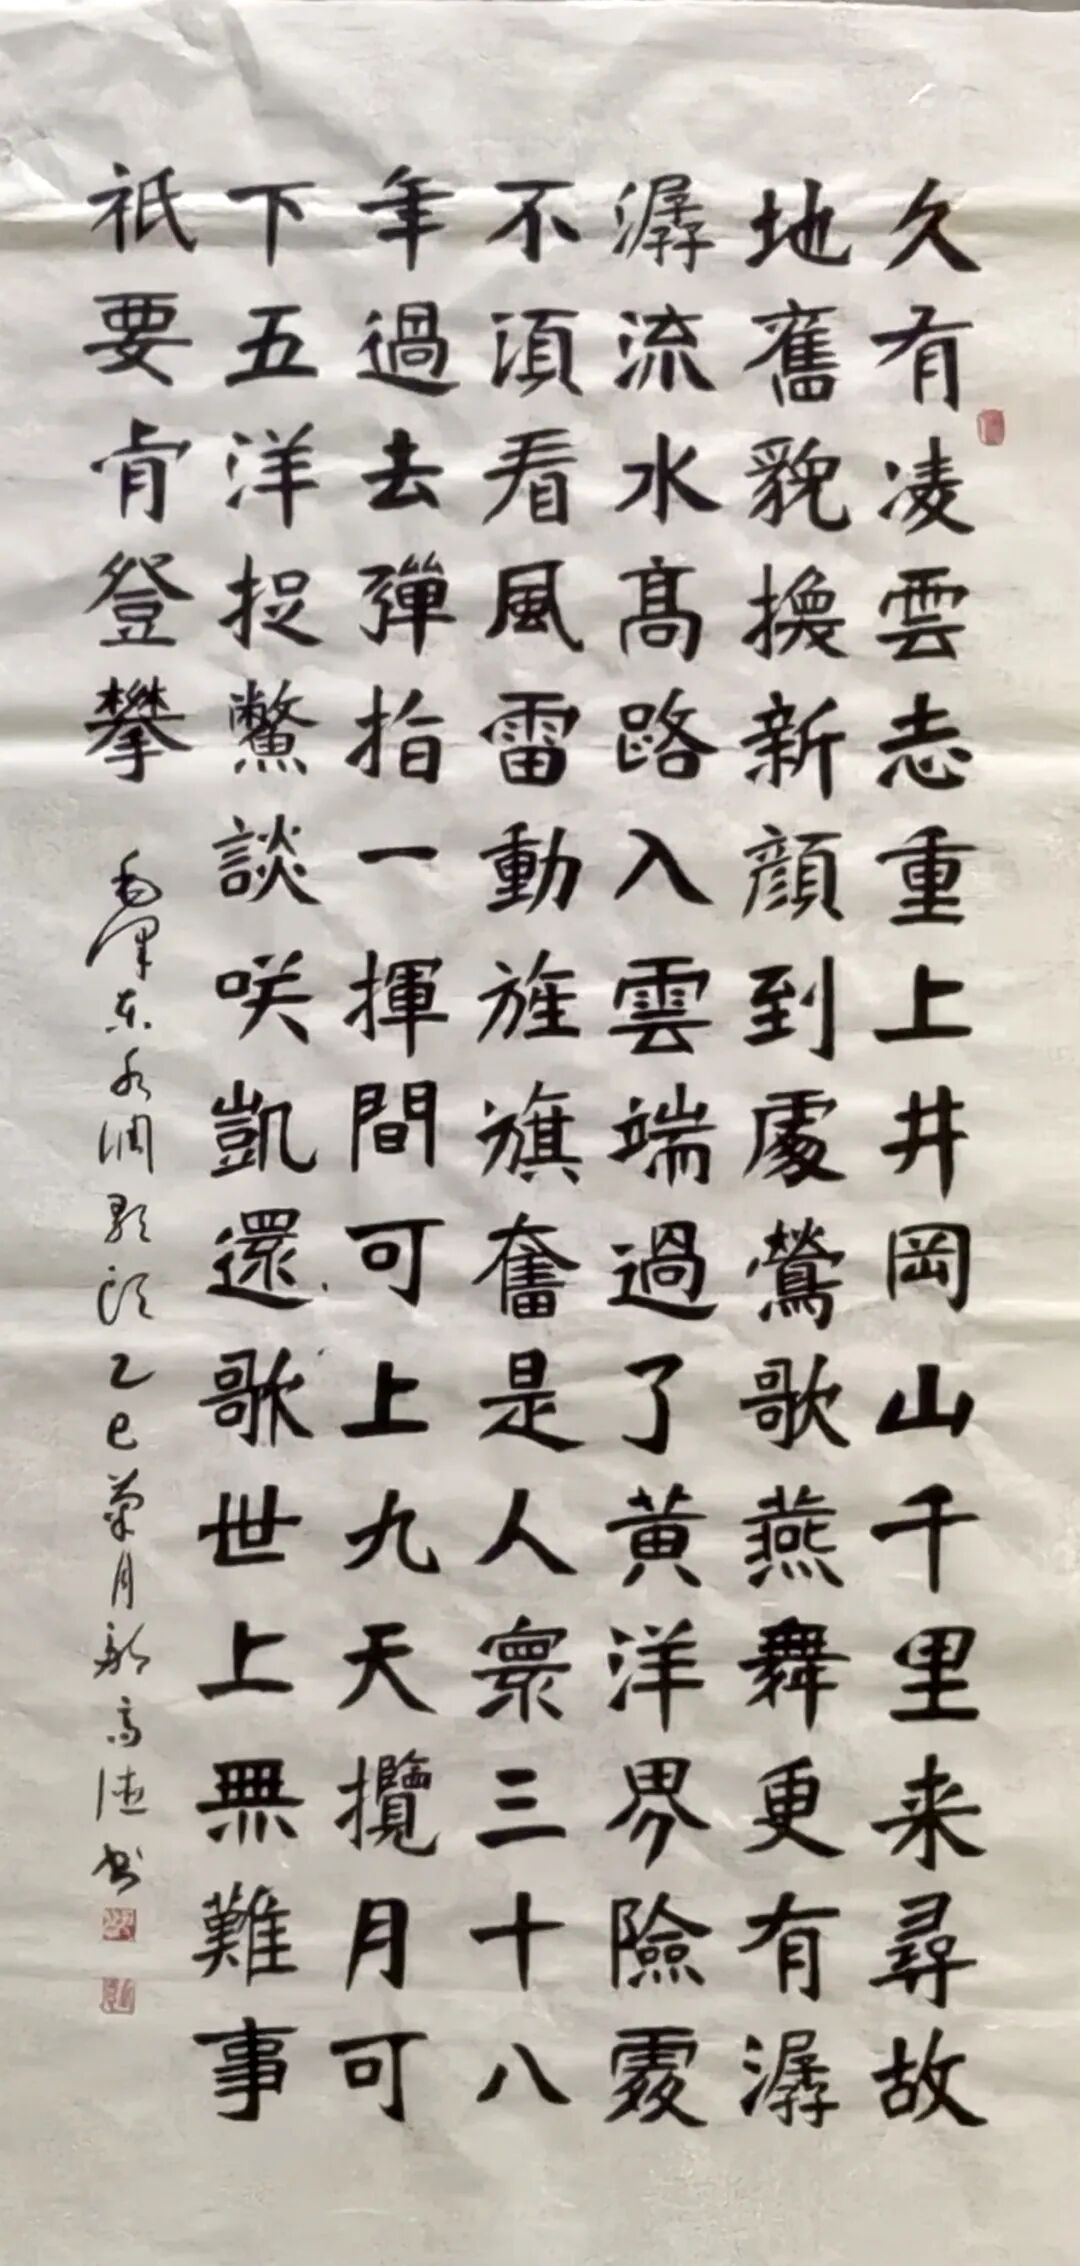 久有凌雲志重上井岡山千里来尋故
地舊貌換新顔到處鶯歌燕舞更有潺
潺流水髙路入雲端過了黄洋界險處
不須看風雷動旌旗奮是人寰三十八
年過去彈指一揮間可上九天攬月可
下五洋捉鱉談咲凱還歌世上無難事
祇要肯登攀
毛澤东水调歌頭乙巳菊月高德书